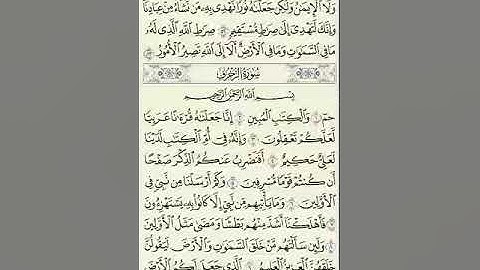 وَلَا ٱلْإِيمَٰنُ وَلَٰكِن جَعَلْنَٰهُ نُورًا نَّهْدِى بِهِۦ مَن نَّشَآءُ مِنْ عِبَادِنَا
وَإِنَّكَ لَتَهْدِىٓ إِلَىٰ صِرَٰطٍ مُّسْتَقِيمٍ ٥٢ صِرَٰطِ ٱللَّهِ ٱلَّذِى لَهُۥ
مَا فِى ٱلسَّمَٰوَٰتِ وَمَا فِى ٱلْأَرْضِ أَلَآ إِلَى ٱللَّهِ تَصِيرُ ٱلْأُمُورُ ٥٣
سُورَةُ الزُّخْرُفِ
بِسْمِ ٱللَّهِ ٱلرَّحْمَٰنِ ٱلرَّحِيمِ
حمٓ ١ وَٱلْكِتَٰبِ ٱلْمُبِينِ ٢ إِنَّا جَعَلْنَٰهُ قُرْءَٰنًا عَرَبِيًّا
لَّعَلَّكُمْ تَعْقِلُونَ ٣ وَإِنَّهُۥ فِىٓ أُمِّ ٱلْكِتَٰبِ لَدَيْنَا
لَعَلِىٌّ حَكِيمٌ ٤ أَفَنَضْرِبُ عَنكُمُ ٱلذِّكْرَ صَفْحًا
أَن كُنتُمْ قَوْمًا مُّسْرِفِينَ ٥ وَكَمْ أَرْسَلْنَا مِن نَّبِىٍّ فِى
ٱلْأَوَّلِينَ ٦ وَمَا يَأْتِيهِم مِّن نَّبِىٍّ إِلَّا كَانُوا۟ بِهِۦ يَسْتَهْزِءُونَ
٧ فَأَهْلَكْنَآ أَشَدَّ مِنْهُم بَطْشًا وَمَضَىٰ مَثَلُ ٱلْأَوَّلِينَ
٨ وَلَئِن سَأَلْتَهُم مَّنْ خَلَقَ ٱلسَّمَٰوَٰتِ وَٱلْأَرْضَ لَيَقُولُنَّ
خَلَقَهُنَّ ٱلْعَزِيزُ ٱلْعَلِيمُ ٩ ٱلَّذِى جَعَلَ لَكُمُ ٱلْأَرْضَ